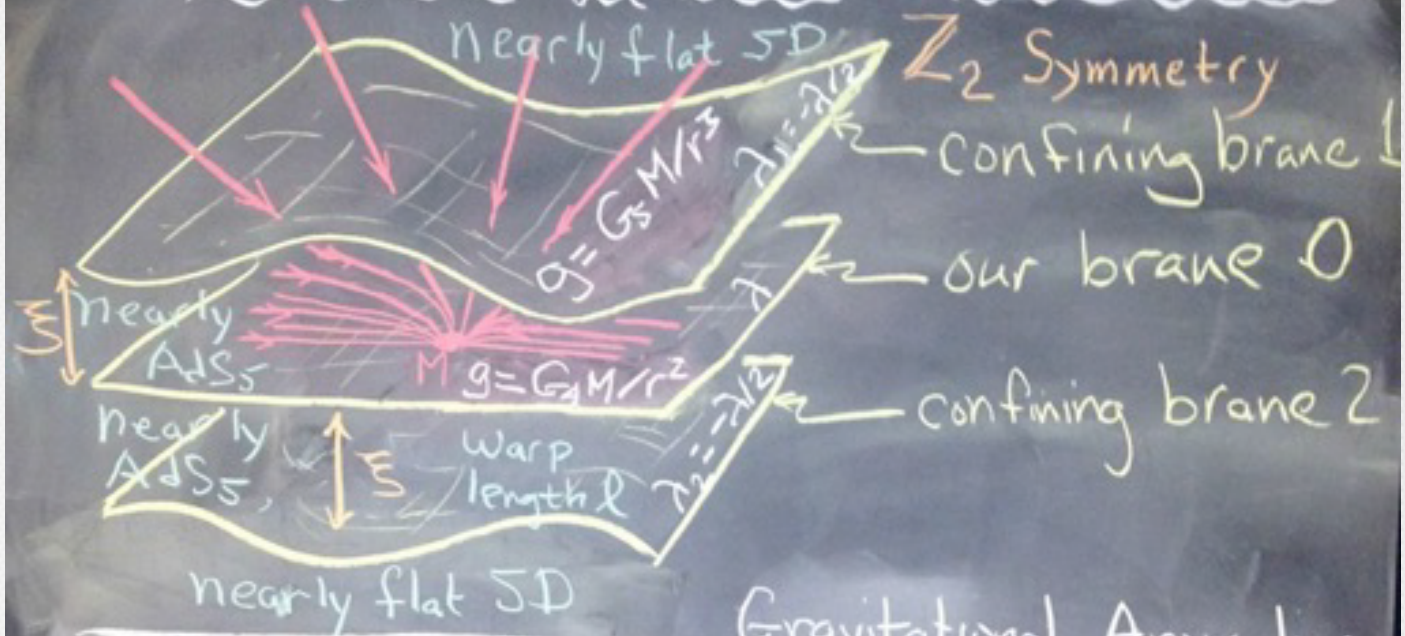 nearly flat 5D
Z₂ Symmetry
λ₁=-λ/2
confining brane 1
g=G₅M/r³
our brane 0
ξ
nearly
AdS₅
λ
M
g=G₄M/r²
confining brane 2
nearly
AdS₅,
ξ
warp
length l
λ₂=-λ/2
nearly flat 5D